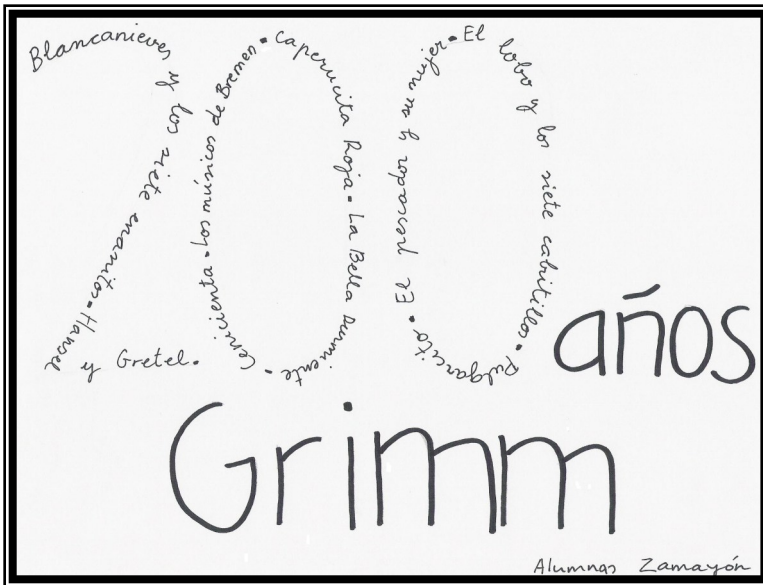 Blancanieves y los siete enanitos. Hansel y Gretel.
Cenicienta. Los músicos de Bremen. Caperucita Roja. La Bella Durmiente.
El pescador y su mujer. El lobo y los siete cabritillos. Pulgarcito.
años
Grimm
Alumnas Zamayón